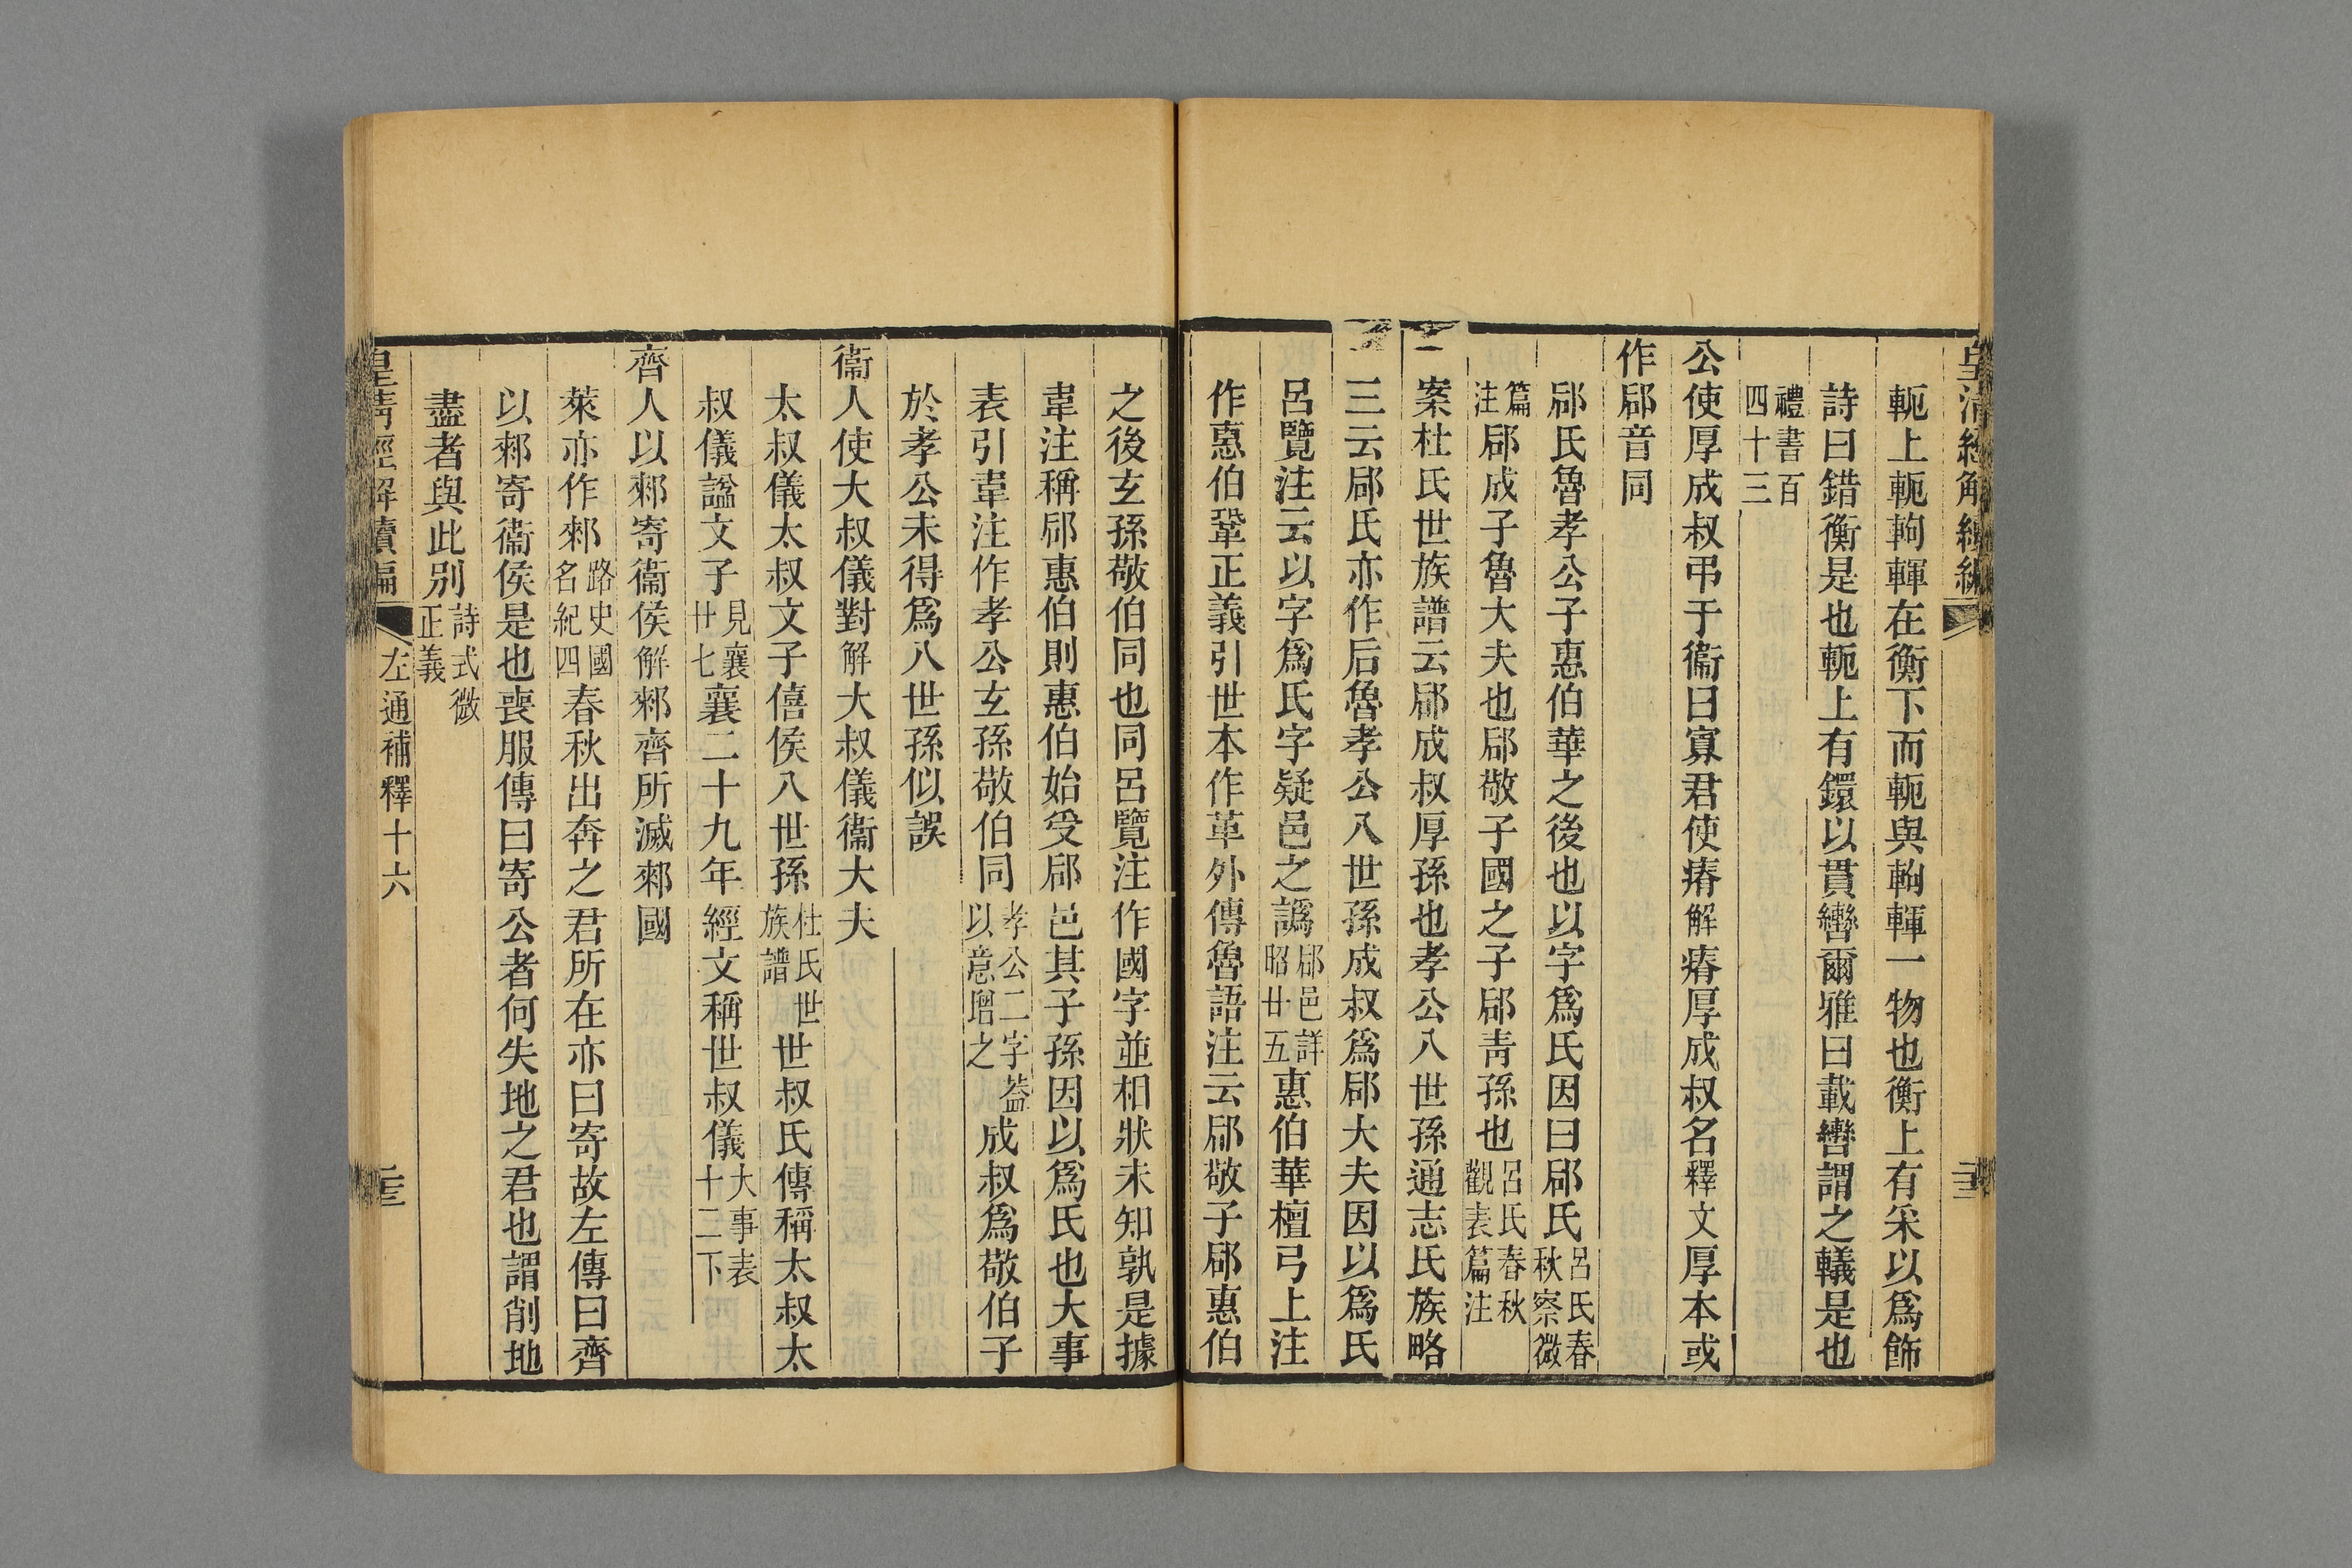 皇清經解續編
軛上軛軥輝在衡下而軛與軥輝一物也衡上有采以爲飾
詩曰錯衡是也軛上有鐶以貫轡爾雅曰載轡謂之轙是也
禮書百四十三
公使厚成叔弔于衞曰寡君使瘠解瘠厚成叔名釋文厚本或
作郈音同
郈氏魯孝公子惠伯華之後也以字爲氏因曰郈氏呂氏春秋察微
篇注郈成子魯大夫也郈敬子國之子郈靑孫也呂氏春秋觀表篇注
案杜氏世族譜云郈成叔厚孫也孝公八世孫通志氏族略
三云郈氏亦作后魯孝公八世孫成叔爲郈大夫因以爲氏
呂覽注云以字爲氏字疑邑之譌郈邑詳昭廿五惠伯華檀弓上注
作惠伯鞏正義引世本作革外傳魯語注云郈敬子郈惠伯
之後玄孫敬伯同也同呂覽注作國字並相狀未知孰是據
韋注稱郈惠伯則惠伯始受郈邑其子孫因以爲氏也大事
表引韋注作孝公玄孫敬伯同孝公二字葢以意增之成叔爲敬伯子
於孝公未得爲八世孫似誤
衞人使大叔儀對解大叔儀衞大夫
太叔儀太叔文子僖侯八世孫杜氏世族譜世叔氏傳稱太叔太
叔儀諡文子見襄廿七襄二十九年經文稱世叔儀大事表十二下
齊人以郲寄衞侯解郲齊所滅郲國
萊亦作郲路史國名紀四春秋出奔之君所在亦曰寄故左傳曰齊
以郲寄衞侯是也喪服傳曰寄公者何失地之君也謂削地
盡者與此別詩式微正義
皇清經解續編 左通補釋十六